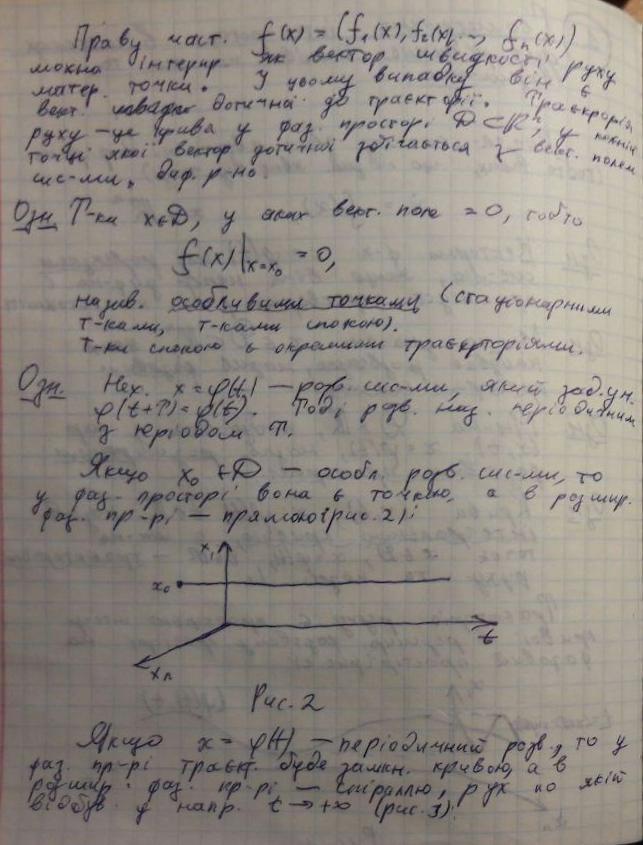 Праву част. f(x) = (f₁(x), f₂(x), ..., fₙ(x))
можна інтерпр. як вектор швидкості руху
матер. точки. У цьому випадку він є
вект. дотичної до траєкторії. Траєкторія
руху – це крива у фаз. просторі D⊂Rⁿ, у кожній
точці якої вектор дотичної збігається з вект. полем
сис-ми диф. р-нь
Озн Т-ки x∈D, у яких вект. поле = 0, тобто
f(x)|ₓ₌ₓ₀ = 0,
назив. особливими точками (стаціонарними
т-ками, т-ками спокою).
Т-ки спокою є окремими траєкторіями.
Озн. Нех. x=φ(t) – розв. сис-ми, який зад. ум.
φ(t+T)=φ(t). Тоді розв. наз. періодичним
з періодом T.
Якщо x₀∈D – особл. розв. сис-ми, то
у фаз. просторі вона є точкою, а в розшир.
фаз. пр-рі – прямою (рис. 2):
x₁
x₀
t
xₙ
Рис. 2
Якщо x = φ(t) – періодичний розв., то у
фаз. пр-рі траєкт. буде замкн. кривою, а в
розшир. фаз. пр-рі – спіраллю, рух по якій
відбув. у напр. t → +∞ (рис. 3):